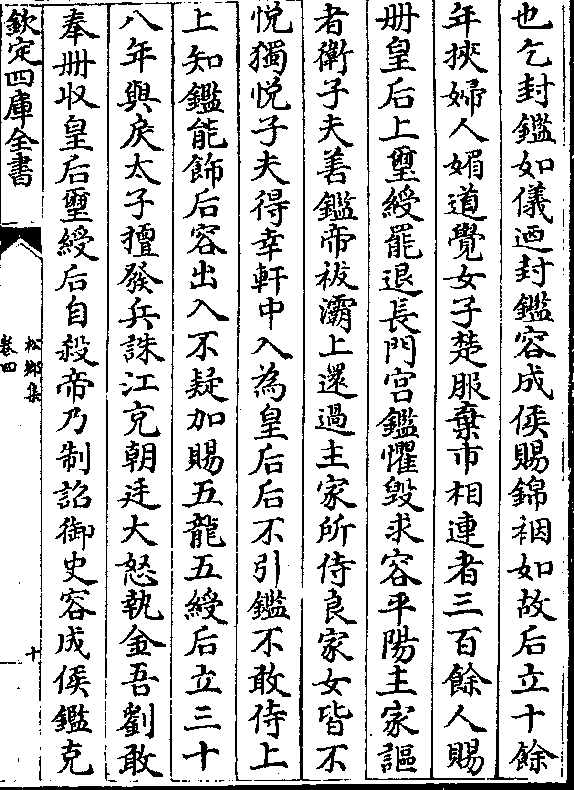 也乞封鑑如儀迺封鑑容成侯賜錦裀如故后立十餘
年挾婦人媚道覺女子楚服棄市相連者三百餘人賜
册皇后上璽綬罷退長門宮鑑懼毀求容平陽主家謳
者衛子夫善鑑帝祓灞上還過主家所侍良家女皆不
悅獨悅子夫得幸軒中入為皇后后不引鑑不敢侍上
上知鑑能飾后容出入不疑加賜五龍五綬后立三十
八年與戾太子擅發兵誅江充朝廷大怒執金吾劉敢
奉册收皇后璽綬后自殺帝乃制詔御史容成侯鑑克
欽定四庫全書
松鄉集
卷四
十